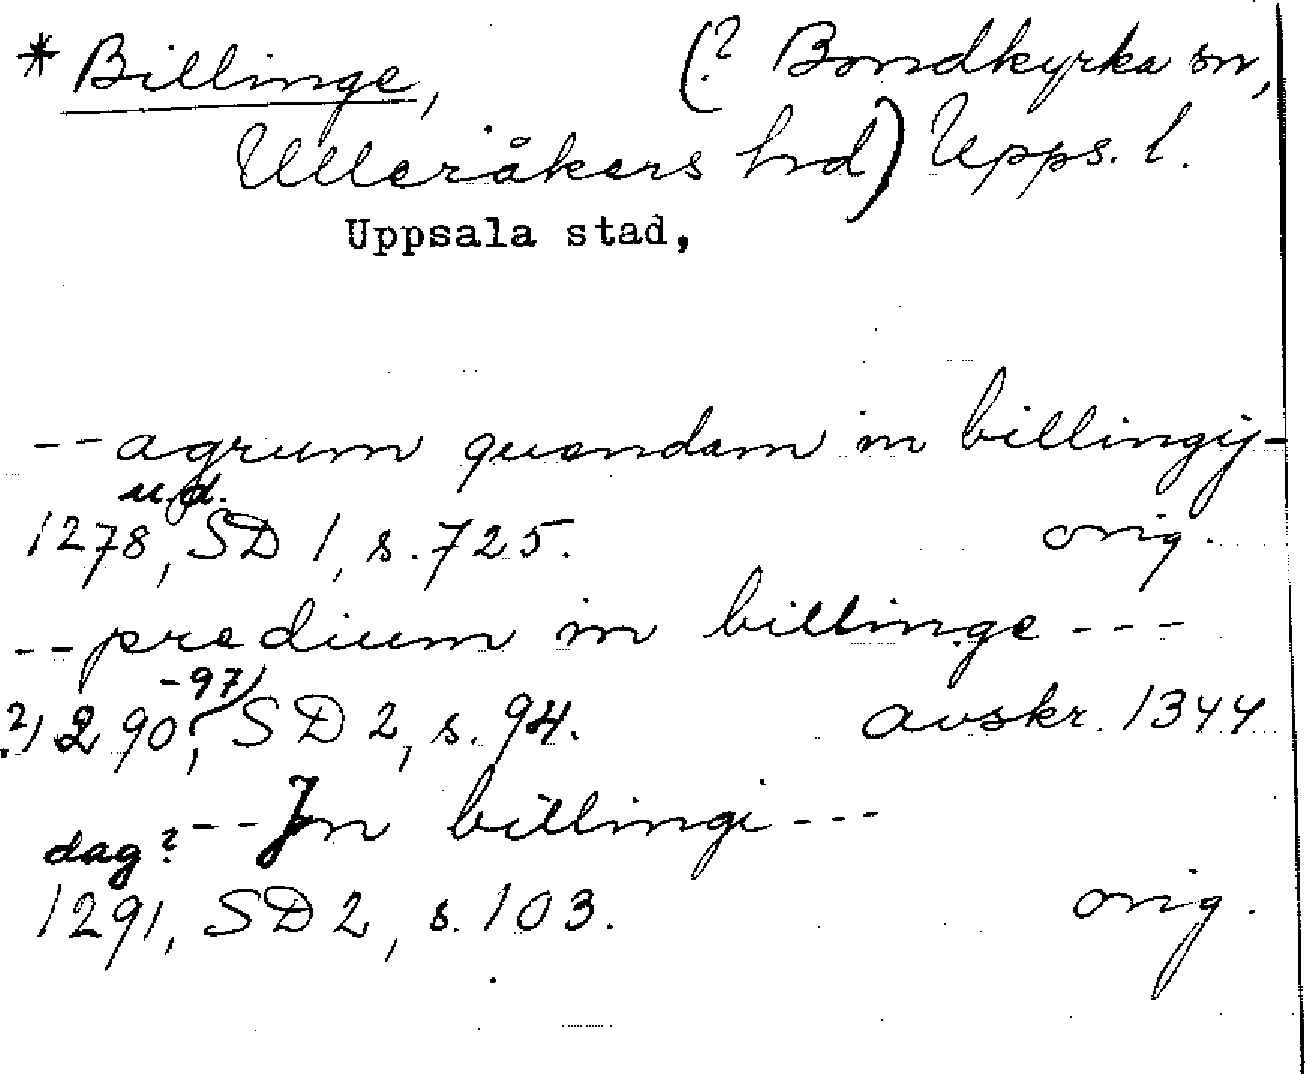 * Billinge, (? Bondkyrka sn,
Ulleråkers hd) Upps. l.
Uppsala stad,
-- agrum quendam in billingij-
u.d.
1278, SD 1, s. 725. orig.
-- predium in billinge ---
-97)
?) 1290, SD 2, s. 94. avskr. 1344
-- Jn billingi ---
dag?
1291, SD 2, s. 103. orig.